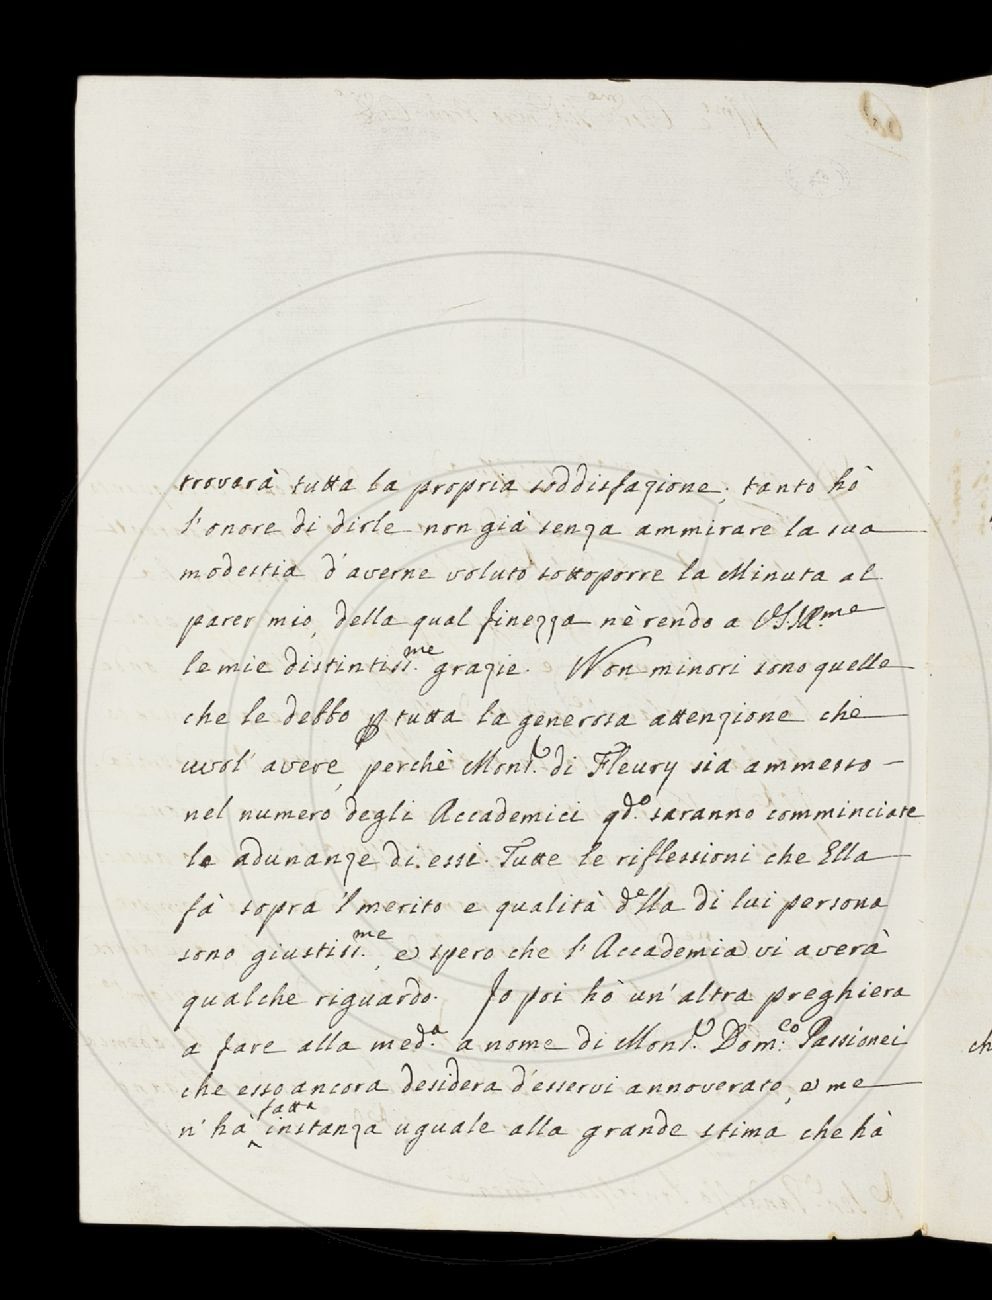 trovarà tutta la propria soddisfazione; tanto hò
l'onore di dirle non già senza ammirare la sua
modestia d'averne voluto sottoporre la Minuta al
parer mio, della qual finezza nè rendo a VS Ill.ma
le mie distintiss.me grazie. Non minori sono quelle
che le debbo p tutta la generosa attenzione che
vuol' avere, perchè Mons.r di Fleury sia ammesso –
nel numero degli Accademici qdo. saranno comminciate
le adunanze di essi. Tutte le riflessioni che Ella
fà sopra 'l merito e qualità della di lui persona
sono giustiss.me, e spero che l'Accademia vi averà
qualche riguardo. Jo poi hò un'altra preghiera
a fare alla med.a a nome di Mons.r Dom.co Passionei
che esso ancora desidera d'esservi annoverato, e me
n'hà fatta instanza uguale alla grande stima che hà
ch